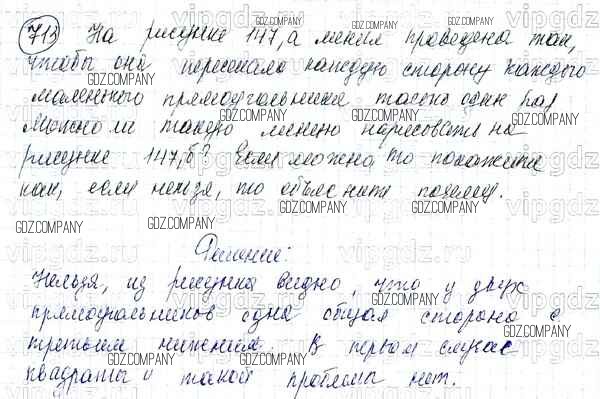 713 На рисунке 147, а линия проведена так,
чтобы она пересекала каждую сторону каждого
маленького прямоугольника только один раз
Можно ли такую линию нарисовать на
рисунке 147, б? Если можно то покажите
как, если нельзя, то объясните почему.
Решение:
Нельзя, из рисунка видно, что у двух
прямоугольников одна общая сторона с
третьим нижним. В первом случае
квадраты и такой проблемы нет.